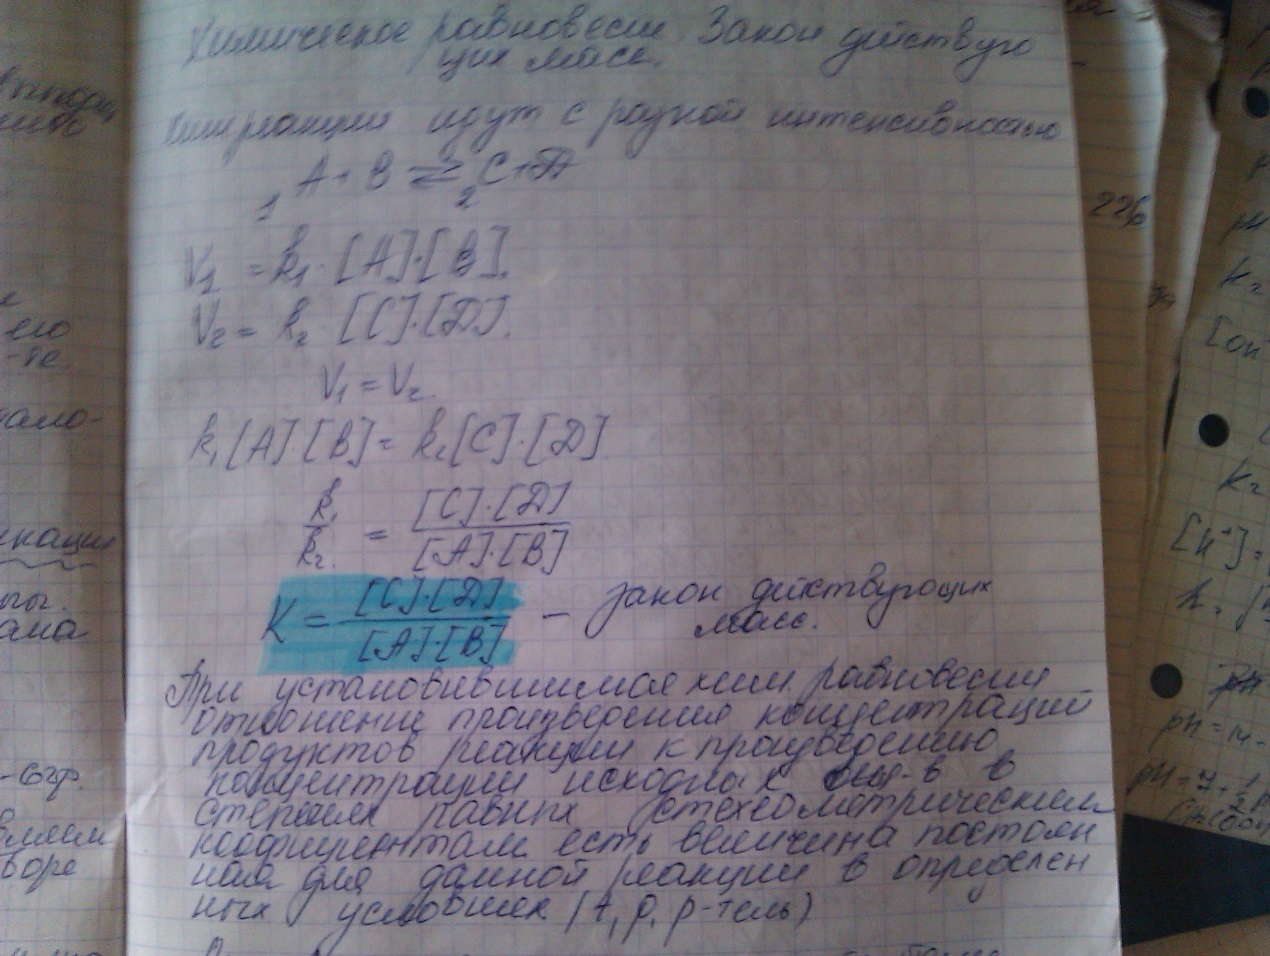 Химическое равновесие. Закон действую
щих масс.
Хим реакции идут с разной интенсивностью
A + B ⇄ C + D
1 2
V₁ = k₁ · [A]·[B].
V₂ = k₂ · [C]·[D].
V₁ = V₂
k₁[A][B] = k₂[C]·[D]
k₁/k₂ = [C]·[D]/[A]·[B]
K = [C]·[D]/[A]·[B] – закон действующих
масс.
При установившимся хим равновесии
отношение произведения концентраций
продуктов реакции к произведению
концентрации исходных в-в в
степенях равных стехеометрическим
коэфициентам есть величина постоян
ная для данной реакции в определен
ных условиях (t, p, р-тель)
226
его
ало-
икации
ама
-согр.
воре
K₂
[OH
K₂
[H⁺] =
pH
pH = 14 -
pH = 7 + 1/2 p